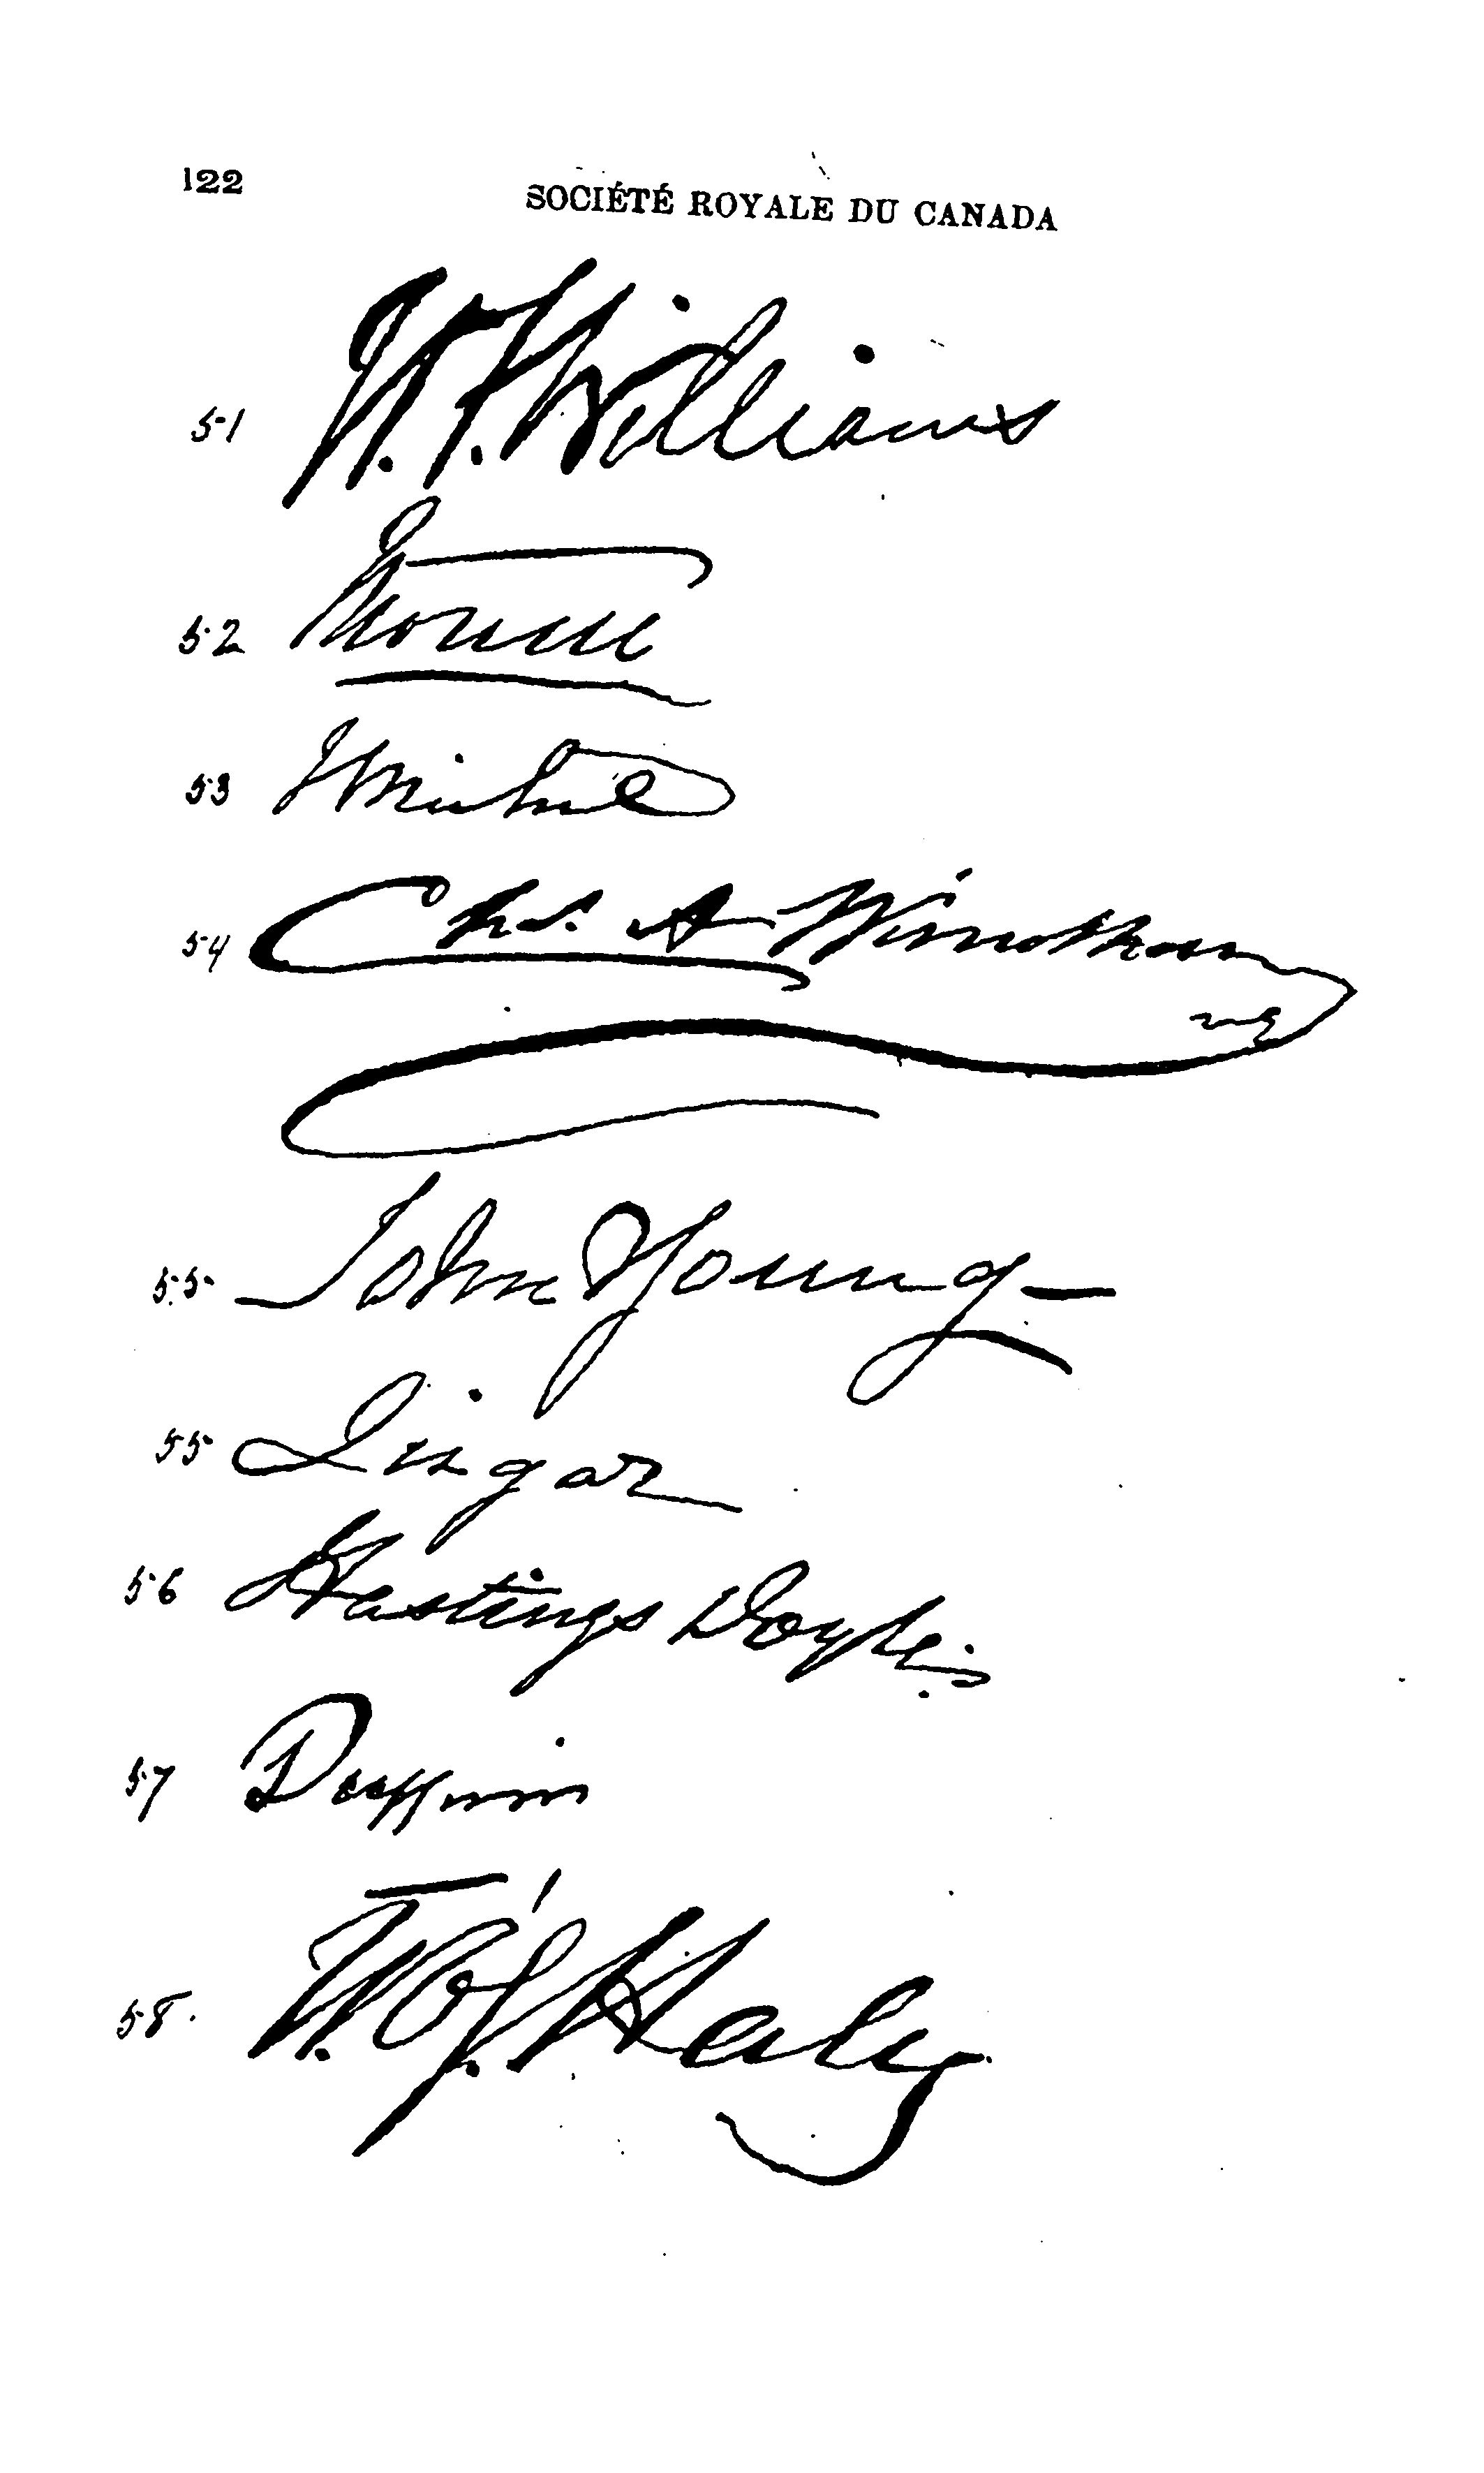 122
SOCIÉTÉ ROYALE DU CANADA
51 W. F. Williams
52 Monck
53 J Michel
54 Chs. A Windham
55 John Young
55 Lisgar
56 Hastings Doyle
57 Dufferin
58. W. O'G. Haly